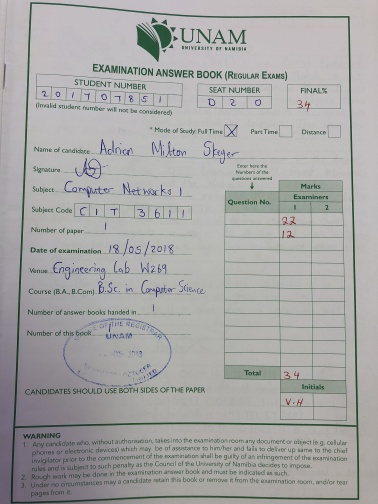 UNAM
UNIVERSITY OF NAMIBIA
EXAMINATION ANSWER BOOK (REGULAR EXAMS)
STUDENT NUMBER
201707851
(Invalid student number will not be considered)
SEAT NUMBER
D20
FINAL%
34
* Mode of Study: Full Time X Part Time Distance
Name of candidate Adrian Milton Skeyer
Signature
Subject Computer Networks 1
Subject Code CIT 3611
Number of paper 1
Date of examination 18/05/2018
Venue Engineering Lab W269
Course (B.A., B.Com) B.Sc. in Computer Science
Number of answer books handed in 1
Number of this book
Enter here the
Numbers of the
questions answered
Question No.
Marks
Examiners
1 2
22
12
Total 34
Initials
V.H
OF THE REGISTRAR
UNAM
2018
CANDIDATES SHOULD USE BOTH SIDES OF THE PAPER
WARNING
1. Any candidate who, without authorisation, takes into the examination room any document or object (e.g. cellular
phones or electronic devices) which may be of assistance to him/her and fails to deliver up same to the chief
invigilator prior to the commencement of the examination shall be guilty of an infringement of the examination
rules and is subject to such penalty as the Council of the University of Namibia decides to impose.
2. Rough work may be done in the examination answer book and must be indicated as such.
3. Under no circumstances may a candidate retain this book or remove it from the examination room, and/or tear
pages from it.